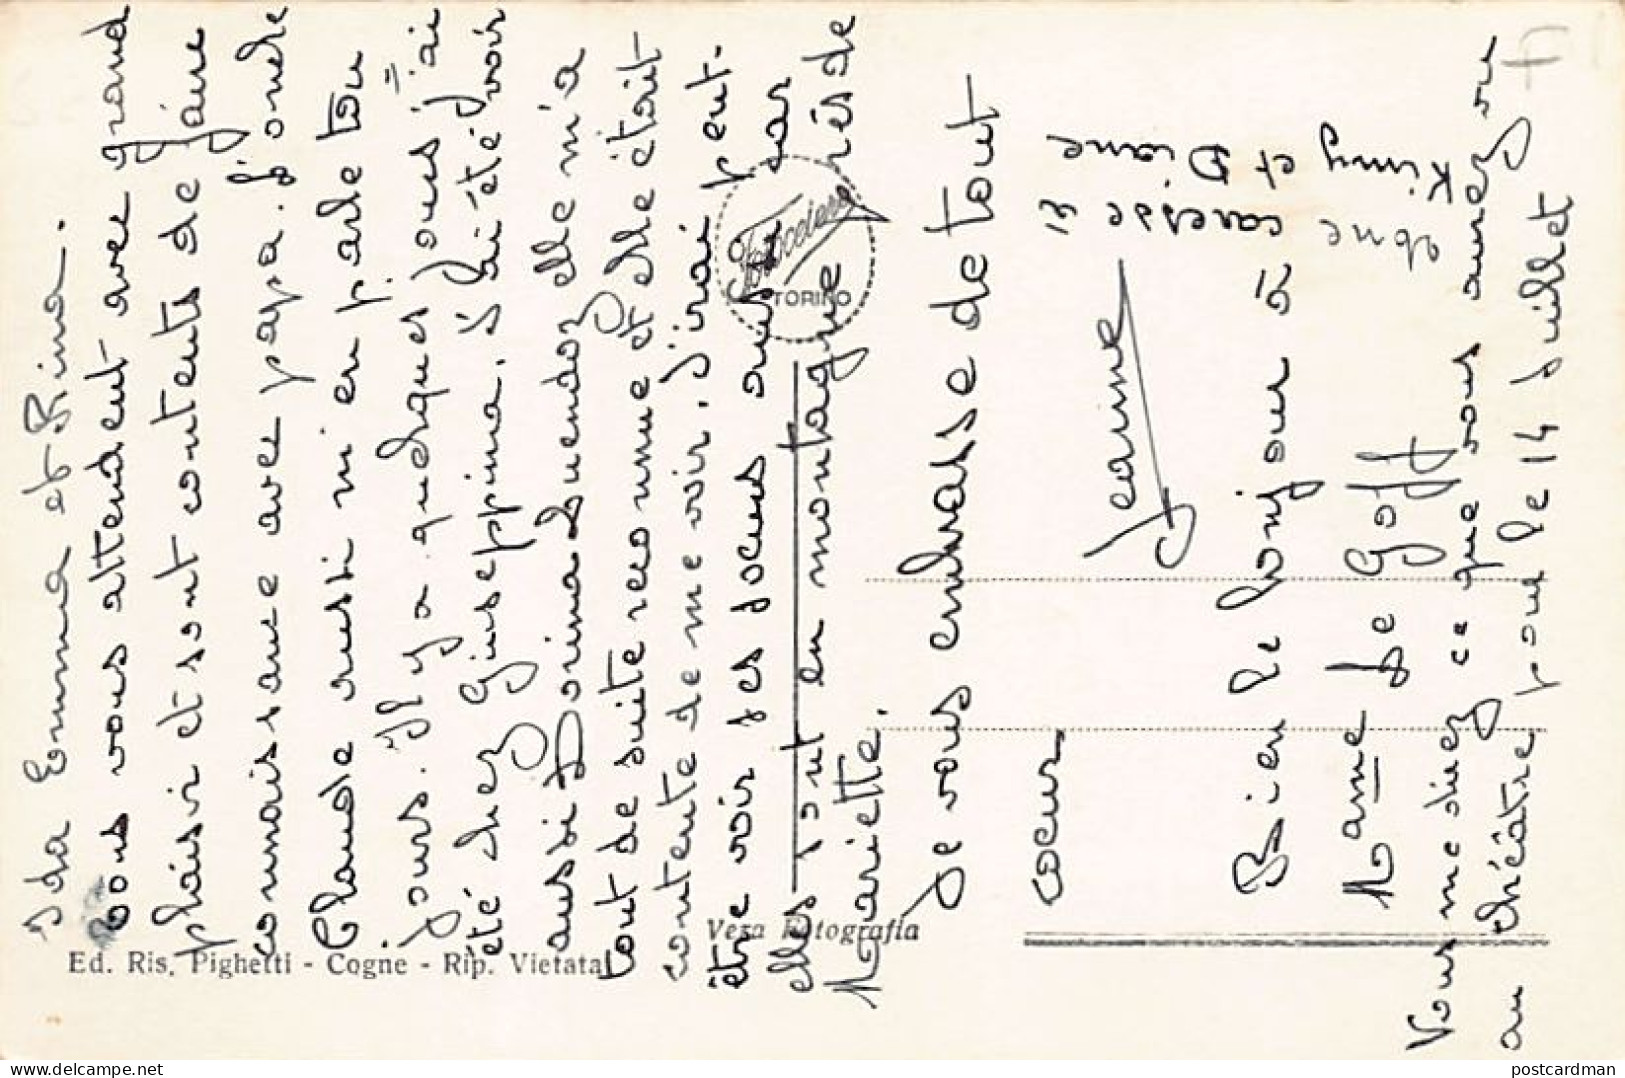 Ida Emma et Rina.
vous vous attendent avec grand
plaisir et sont contents de faire
connaissance avec papa. J'oncle
Claude aussi m'en parle tou
jours. Il y a quelques jours j'ai
été chez Giuseppina. J'ai été voir
aussi Dorina elle m'a
tout de suite reconnue et elle était
contente de me voir. J'irai peut-
être voir ses soeurs
elles sont en montagne près de
Mariette.
Je vous embrasse de tout
coeur
Jeanine
Bien le bonjour à
Mame Le Goff
Vous me direz ce que vous aurez vu
au théâtre pour le 14 juillet
une caresse à
Kinny
et Diane
Ed. Ris. Pighetti - Cogne - Rip. Vietata
Vera Fotografia
Fotocelere
TORINO
postcardman
delcampe.net